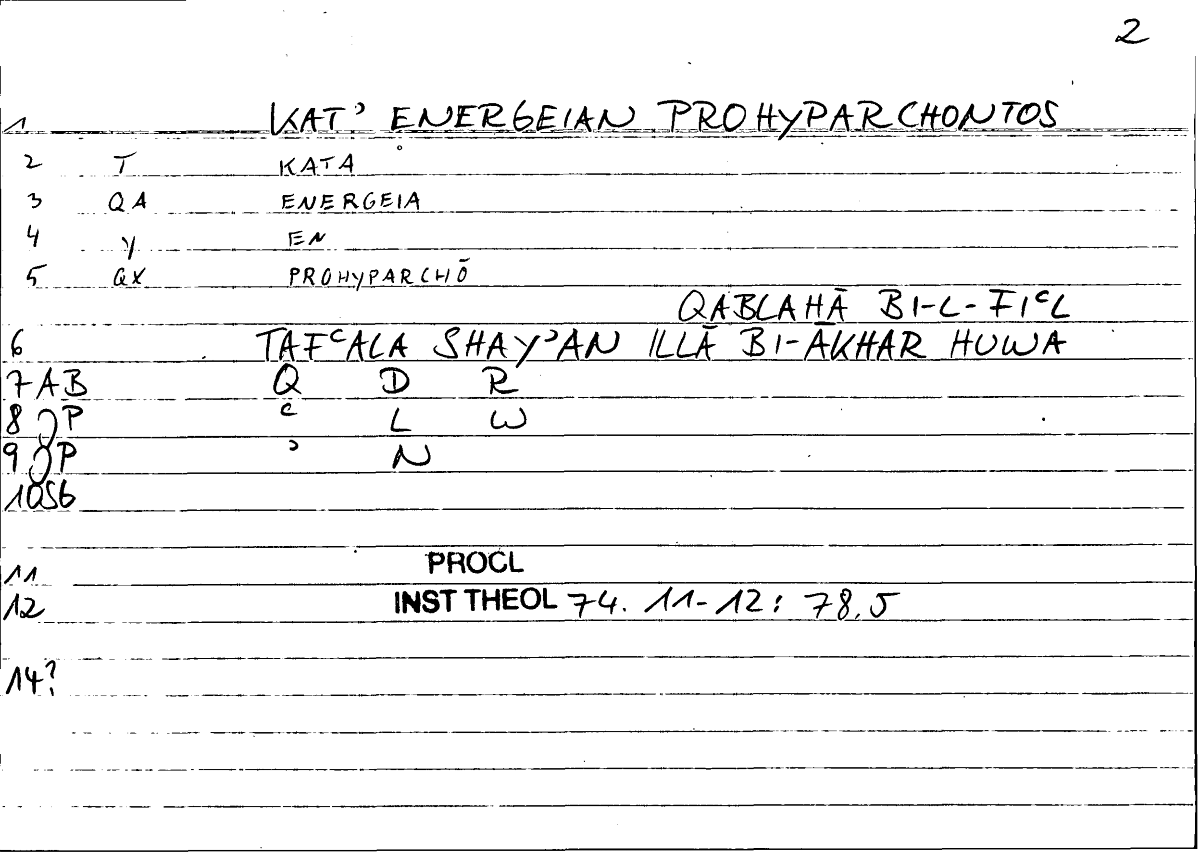 2
1 KAT' ENERGEIAN PROHYPARCHONTOS
2 T KATA
3 QA ENERGEIA
4 Y EN
5 QX PROHYPARCHŌ
QABLAHĀ BI-L-FIᶜL
6 TAFᶜALA SHAYʾAN ILLĀ BI-ĀKHAR HUWA
7 AB Q D R
8 P ᶜ L W
9 P ʾ N
10 SG
11 PROCL
12 INST THEOL 74. 11-12: 78,5
14?